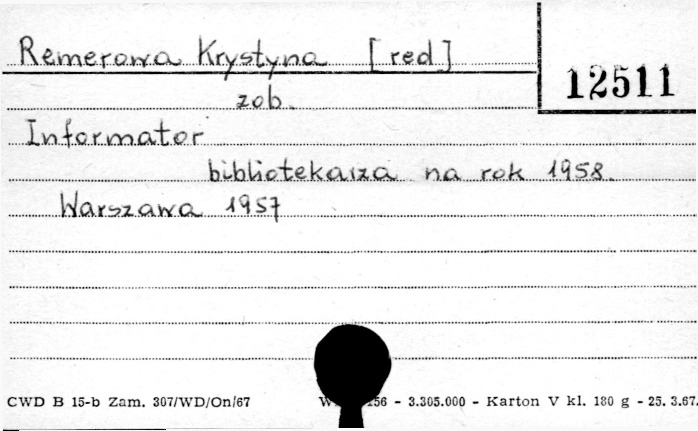 Remerowa Krystyna [red]
12511
zob.
Informator
bibliotekarza na rok 1958.
Warszawa 1957
CWD B 15-b Zam. 307/WD/On/67 56 - 3.305.000 - Karton V kl. 180 g - 25. 3.67.